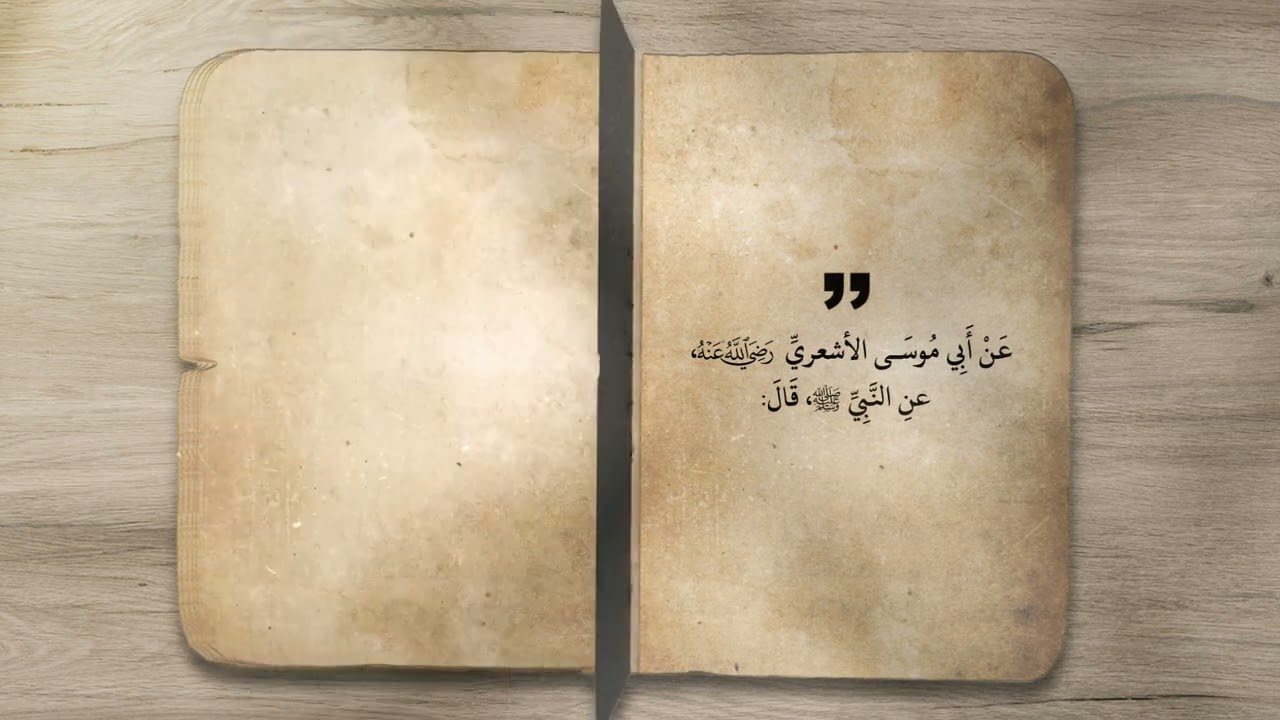 ”
عَنْ أَبِي مُوسَى الأشعريِّ رَضِيَ اللَّهُ عَنْهُ،
عنِ النَّبِيِّ ﷺ، قَالَ: